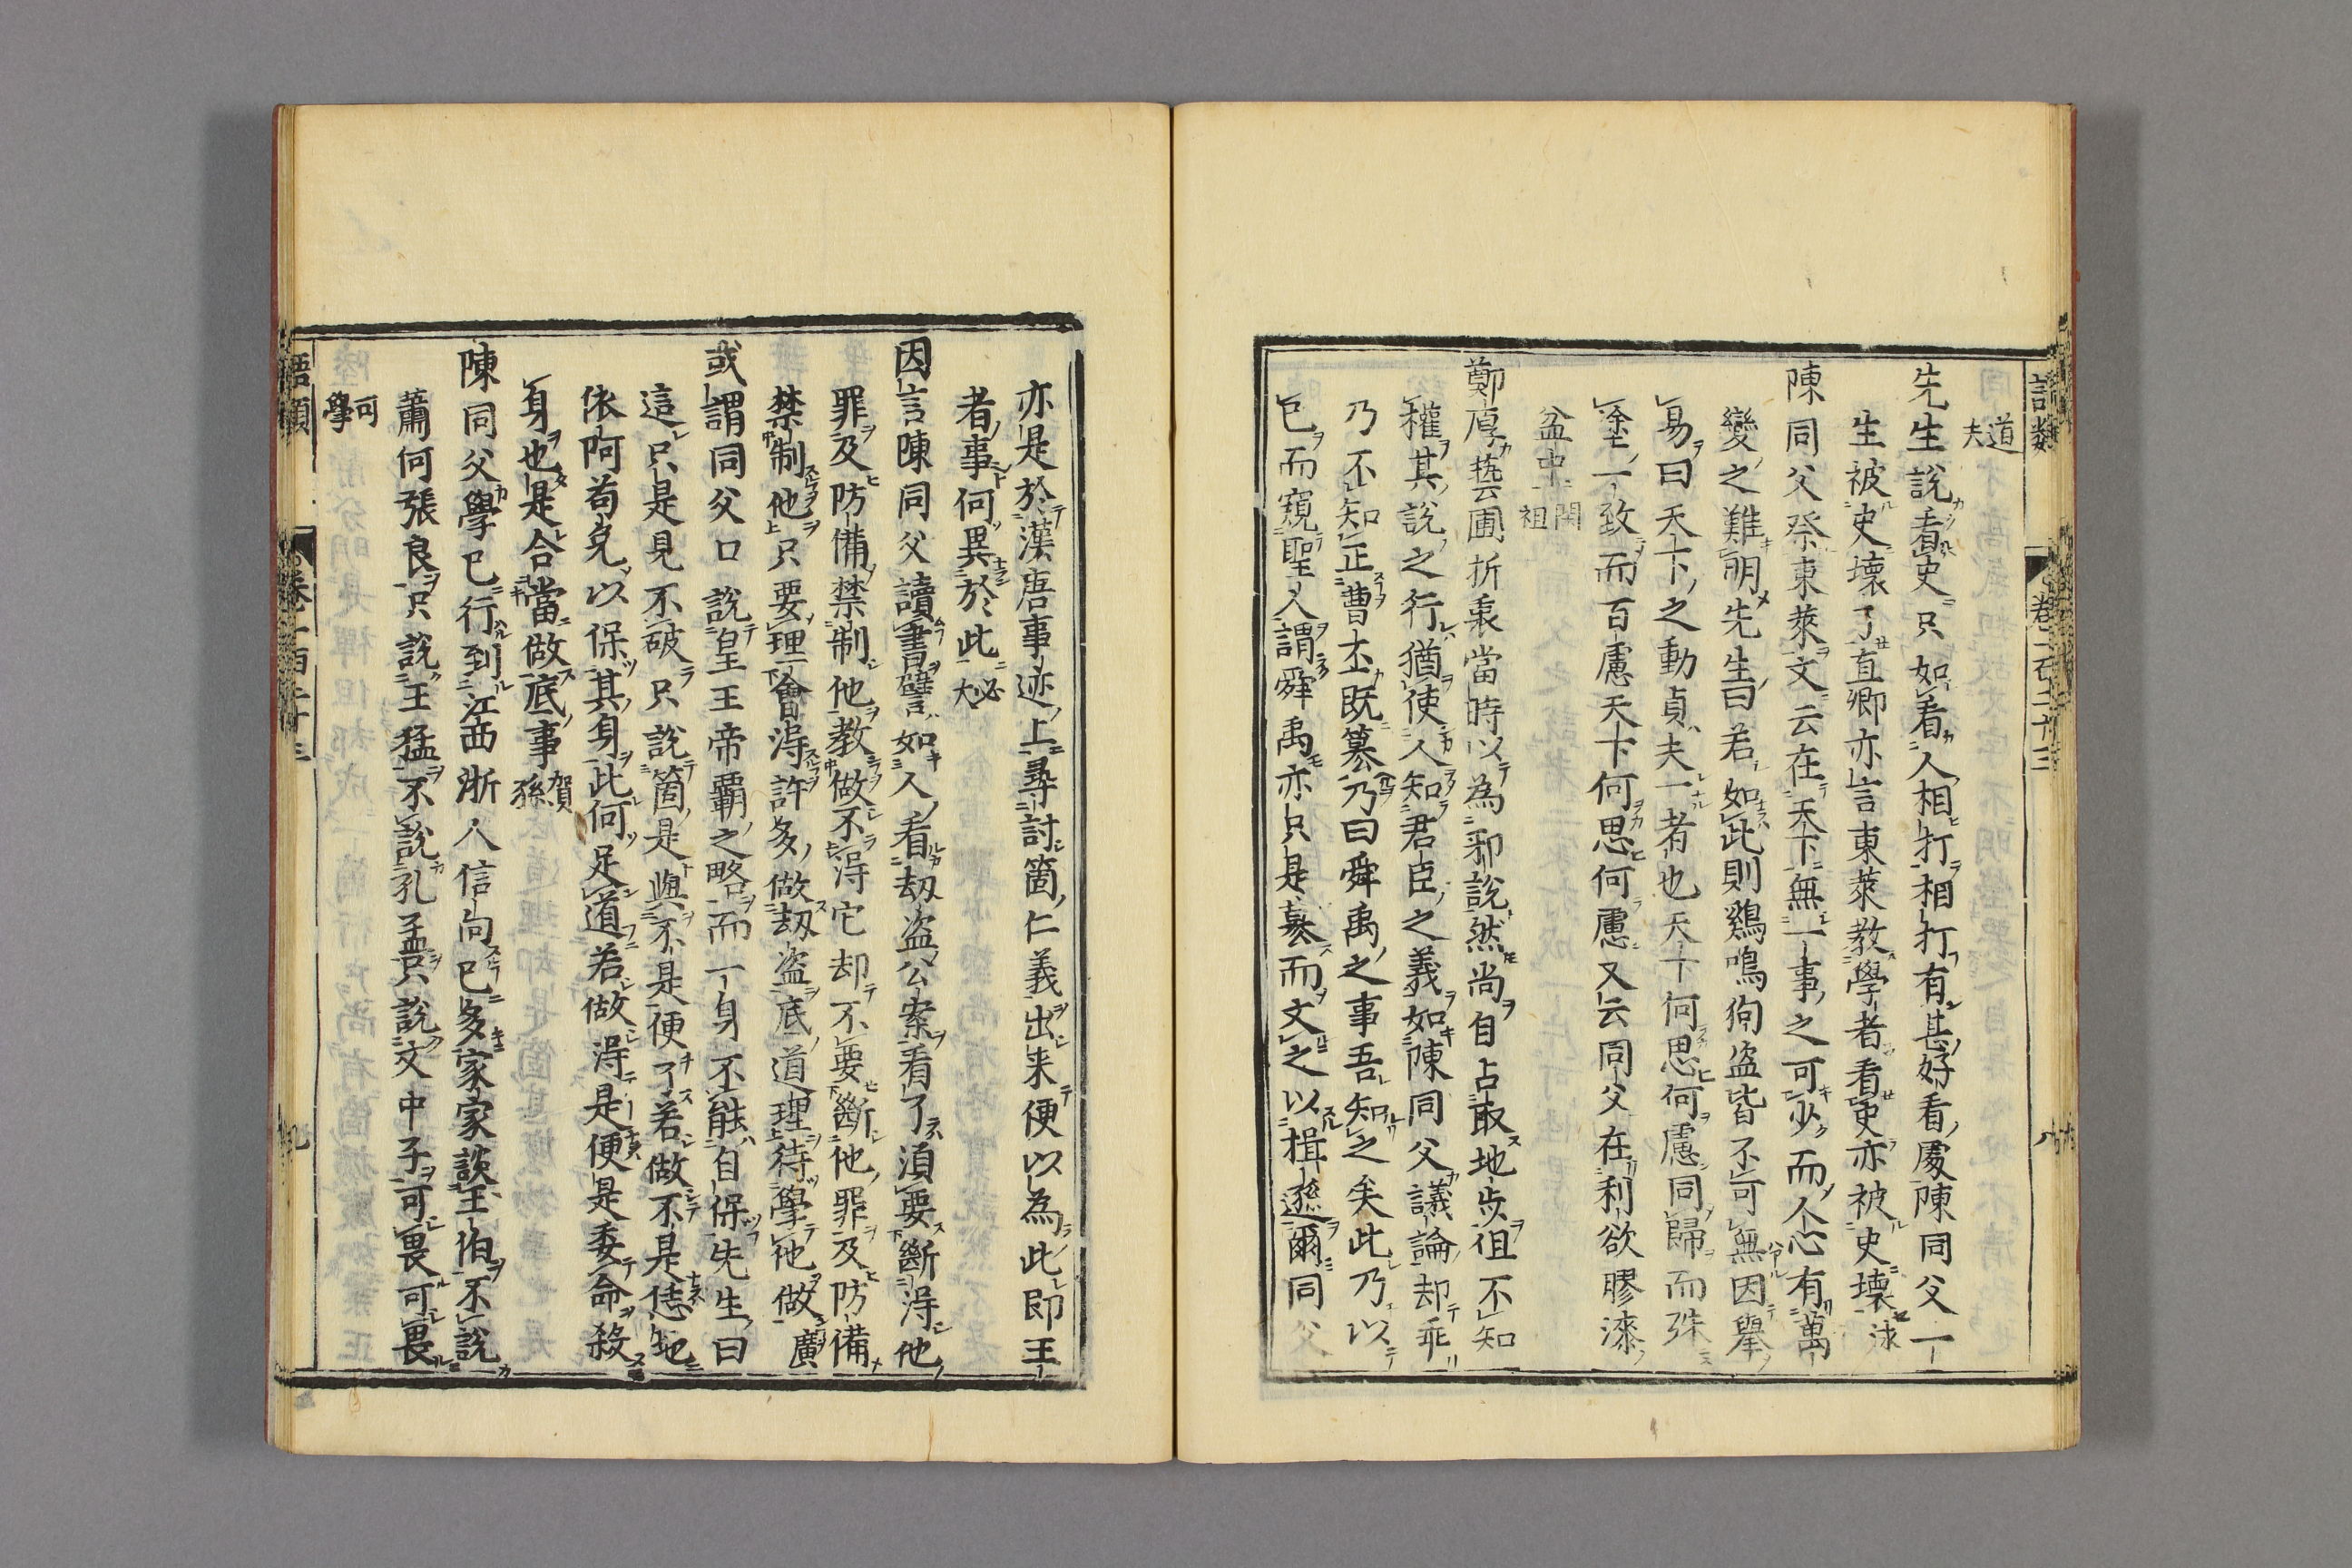 語類
卷一百二十三
八
道夫
先生說看史只如看人相打相打有甚好看處陳同父一
生被史壞了直卿亦言東萊教學者看史亦被史壞泳
陳同父祭東萊文云在天下無一事之可少而人心有萬
變之難明先生曰若如此則鷄鳴狗盗皆不可無因舉
易曰天下之動貞夫一者也天下何思何慮同歸而殊
塗一致而百慮天下何思何慮又云同父在利欲膠漆
盆中閎祖
鄭厚藝圃折衷當時以為邪說然尚自占取地步徂不知
權其說之行猶使人知君臣之義如陳同父議論却乖
乃不知正曹丕既簒乃曰舜禹之事吾知之矣此乃以
已而窺聖人謂舜禹亦只是簒而文之以揖遜爾同父
亦是於漢唐事迹上尋討箇仁義出来便以為此即王
者事何異於此必大
因言陳同父讀書譬如人看刼盗公案看了湏要斷淂他
罪及防備禁制他教做不淂它却不要斷他罪及防備
禁制他只要理會淂許多做刼盗底道理待學他做廣
或謂同父口說皇王帝覇之略而一身不能自保先生曰
這只是見不破只說箇是與不是便了若做不是恁地
依阿苟免以保其身此何足道若做淂是便是委命殺
身也是合當做底事賀孫
陳同父學已行到江西浙人信向已多家家談王伯不說
蕭何張良只說王猛不說孔孟只說文中子可畏可畏
可學
語類
卷一百二十三
九